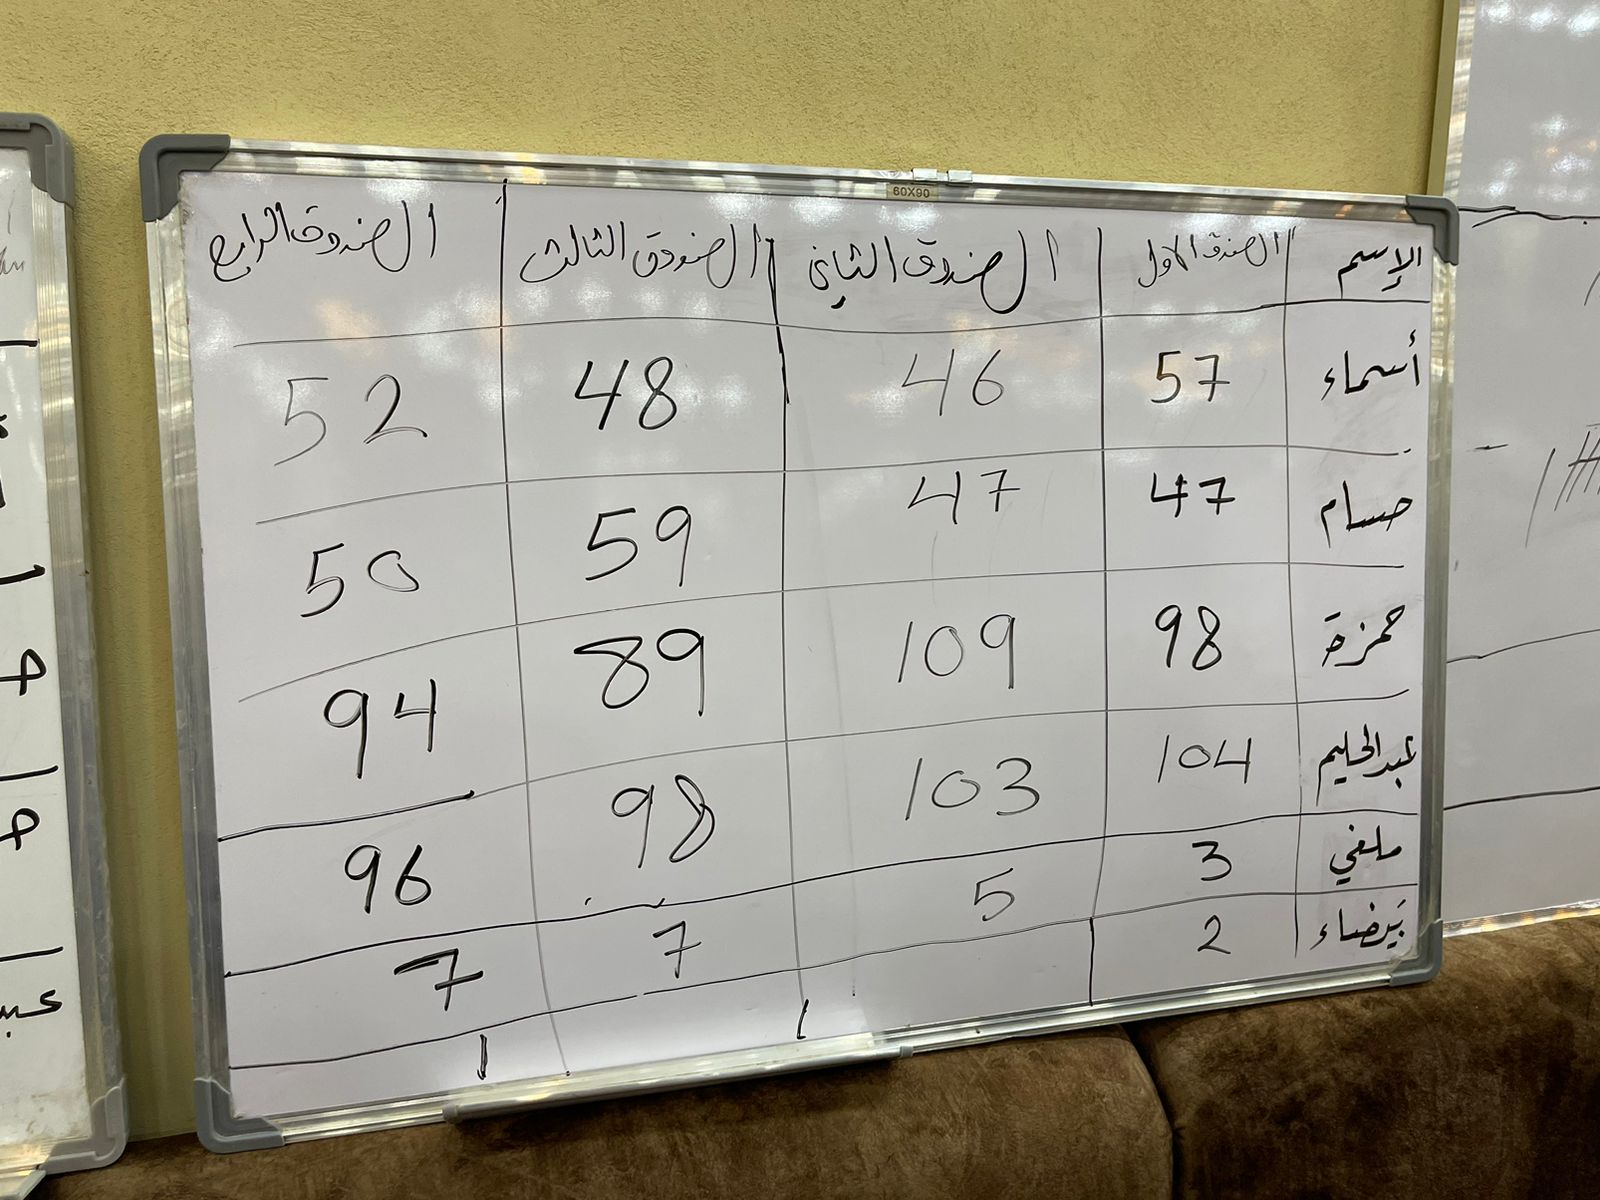 60X90
الإسم الصندق الأول الصندوق الثاني الصندوق الثالث الصندوق الرابع
أسماء 57 46 48 52
حسام 47 47 59 50
حمزة 98 109 89 94
عبدالحليم 104 103 98 96
ملغي 3 5 7 7
بيضاء 2 1 1